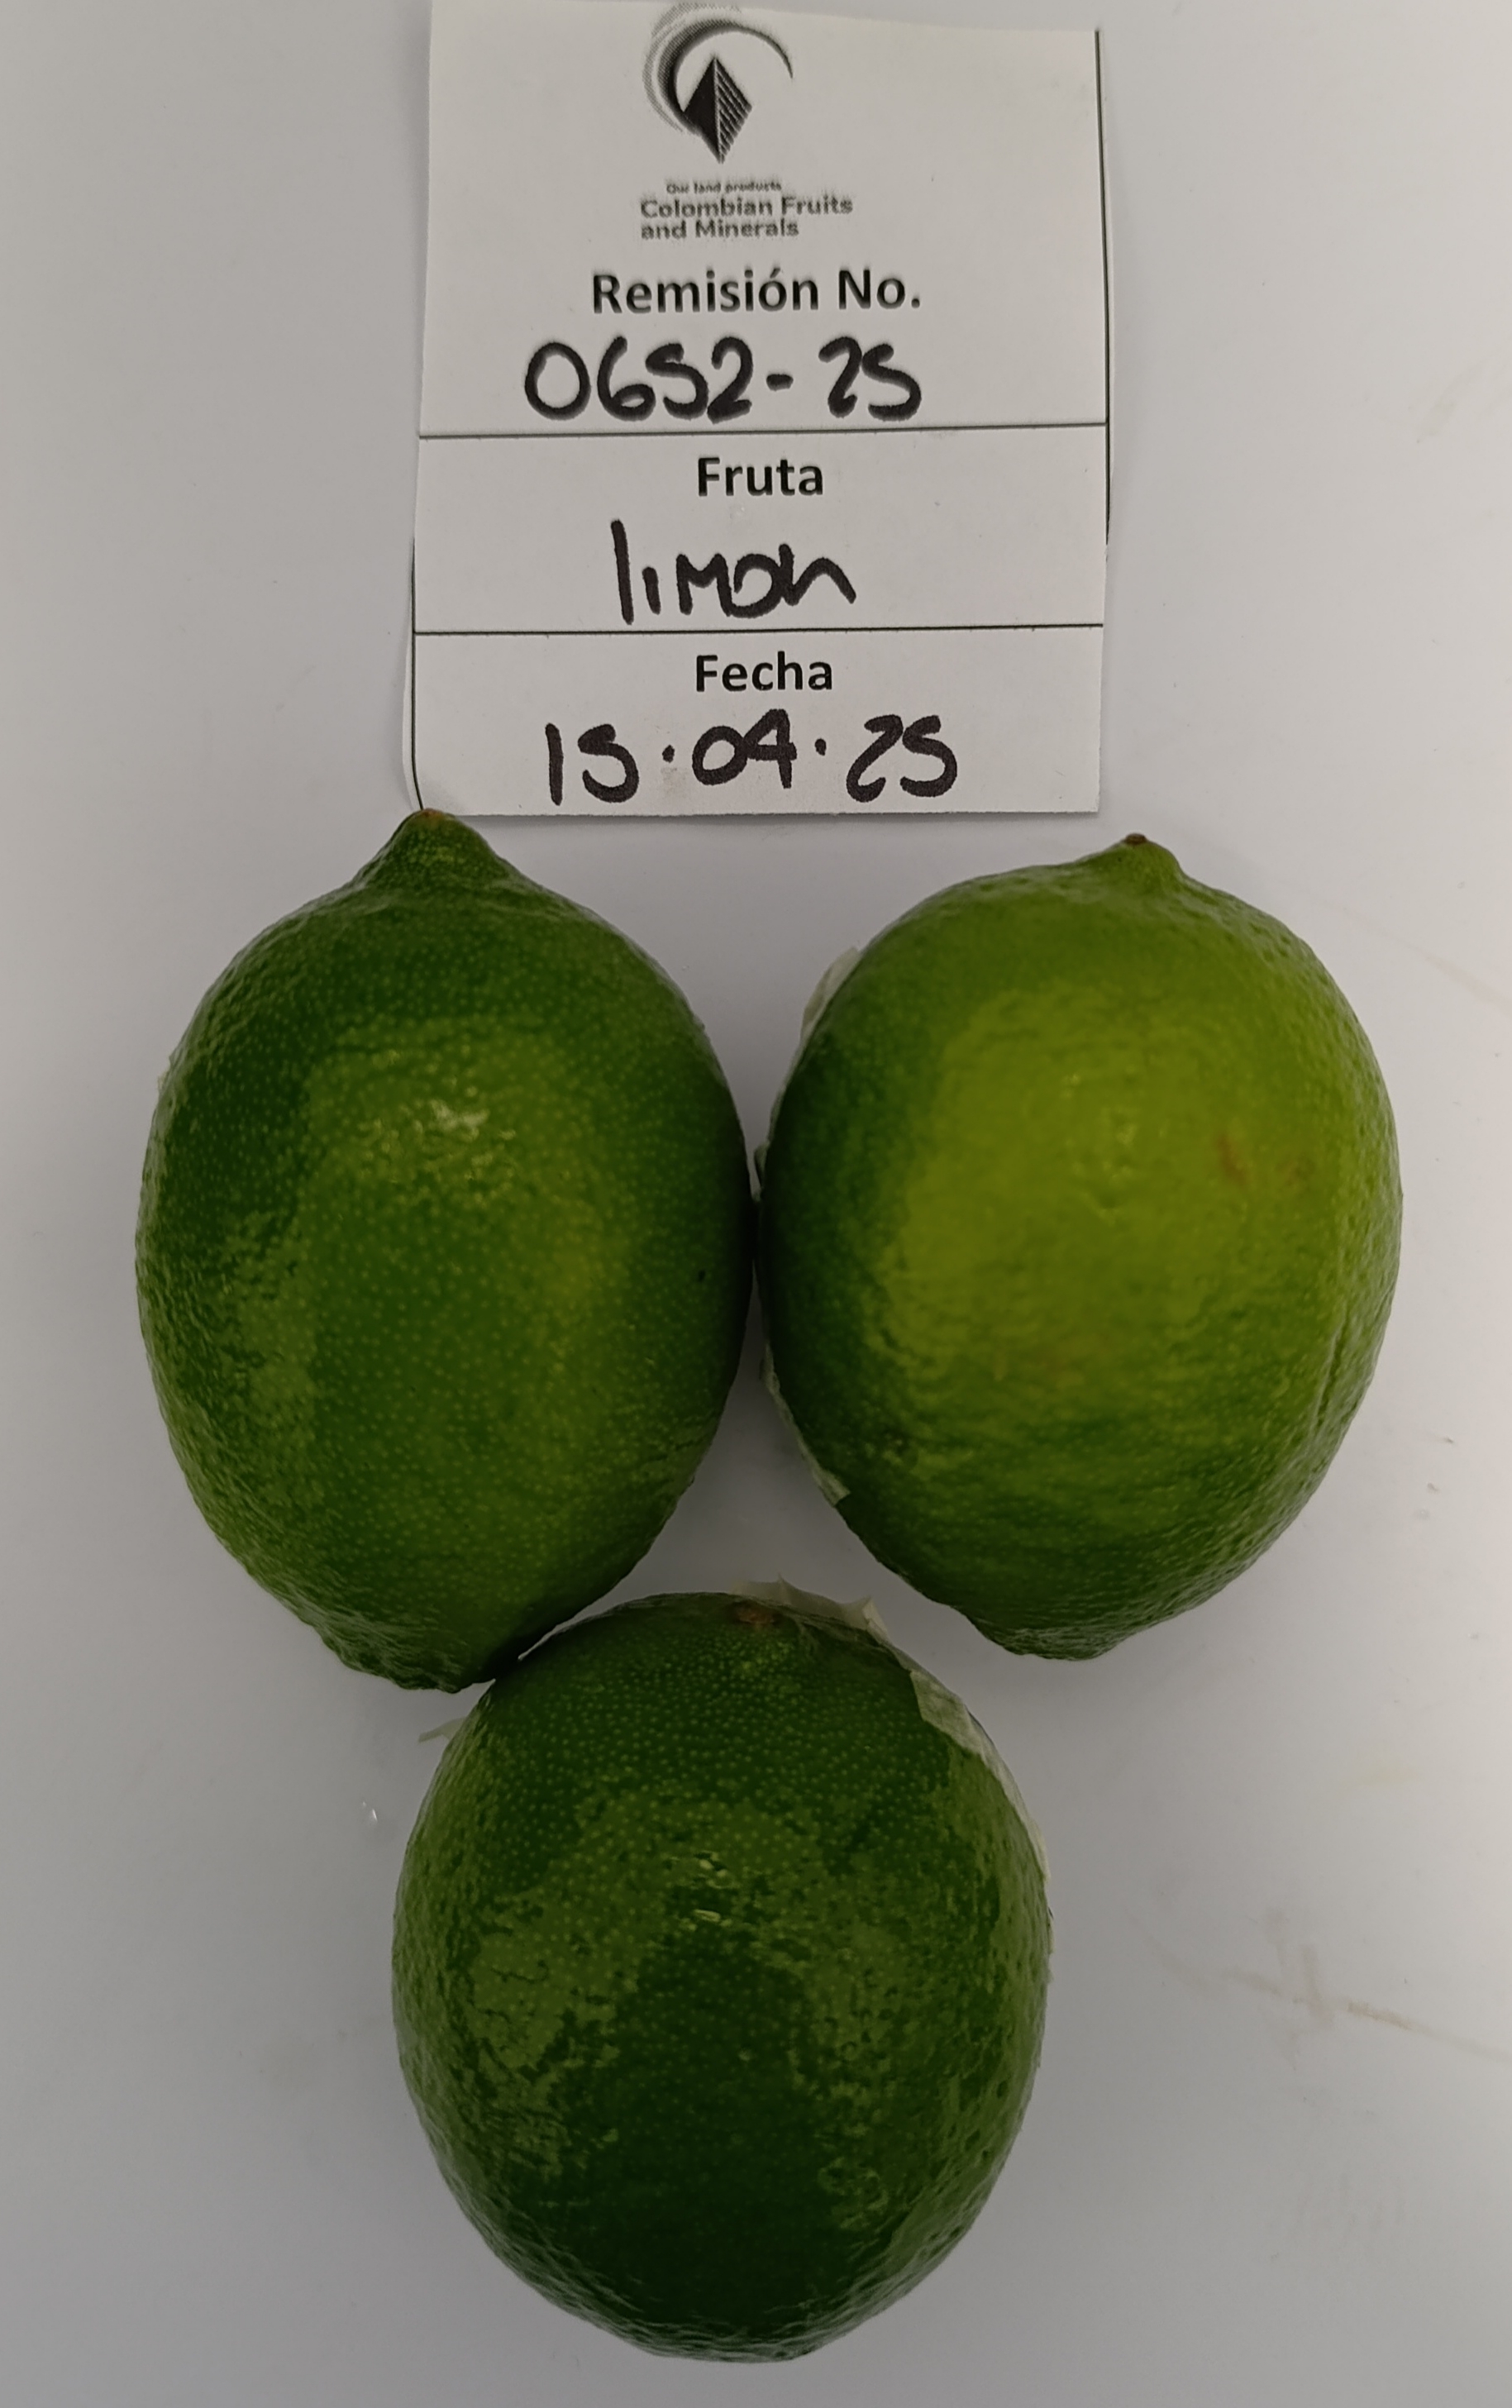 Our land products
Colombian Fruits
and Minerals
Remisión No.
0652-25
Fruta
limon
Fecha
15.04.25